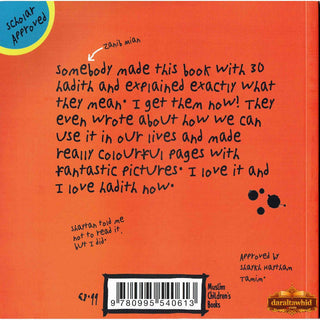 Scholar
Approved
Zanib Mian
Somebody made this book with 30
hadith and explained exactly what
they mean. I get them now! They
even wrote about how we can
use it in our lives and made
really colourful pages with
fantastic pictures. I love it and
I love hadith now.
Shaytan told me
not to read it,
but I did.
Approved by
Shaykh Haytham
Tamim.
£7.99
Muslim
Children's
Books
9 780995 540613
daraltawhid